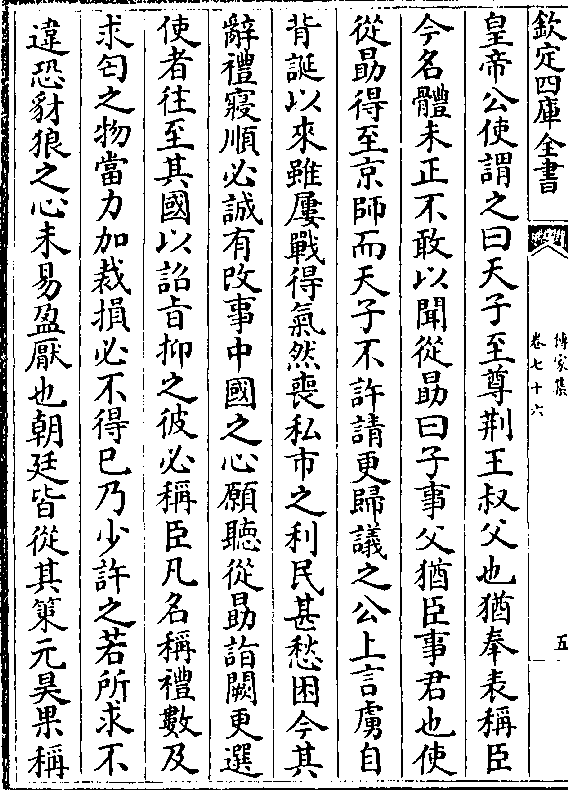 欽定四庫全書
傳家集
卷七十六
五
皇帝公使謂之曰天子至尊荆王叔父也猶奉表稱臣
今名體未正不敢以聞從勗曰子事父猶臣事君也使
從勗得至京師而天子不許請更歸議之公上言虜自
背誕以來雖屢戰得氣然喪私市之利民甚愁困今其
辭禮寖順必誠有改事中國之心願聽從勗詣闕更選
使者往至其國以詔旨抑之彼必稱臣凡名稱禮數及
求匄之物當力加裁損必不得已乃少許之若所求不
違恐豺狼之心未易盈厭也朝廷皆從其策元昊果稱